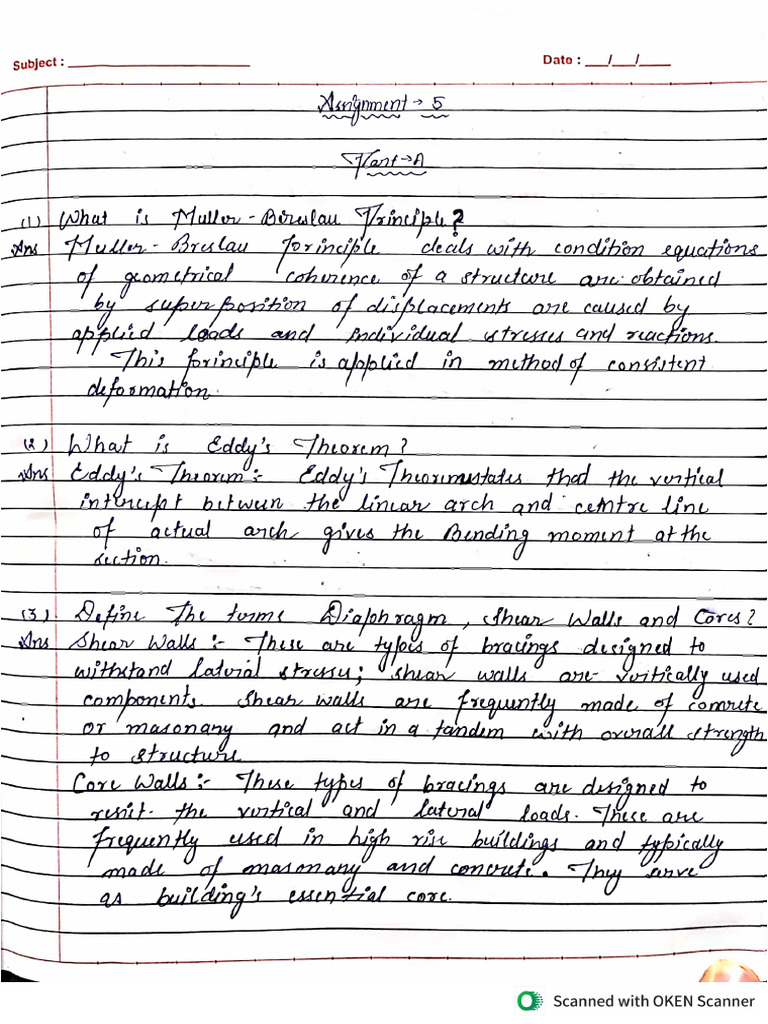 Subject :
Date : __/__/__
Assignment → 5
Part → A
(1) What is Muller - Breslau Principle?
Ans Muller - Breslau principle deals with condition equations
of geometrical coherence of a structure are obtained
by superposition of displacements are caused by
applied loads and individual stresses and reactions.
This principle is applied in method of consistent
deformation.
(2) What is Eddy's Theorem?
Ans Eddy's Theorem :- Eddy's Theorem states that the vertical
intercept between the linear arch and centre line
of actual arch gives the Bending moment at the
section.
(3) Define the terms Diaphragm, Shear Walls and Cores?
Ans Shear Walls :- These are types of bracings designed to
withstand lateral stresses; shear walls are vertically used
components. Shear walls are frequently made of concrete
or masonary and act in a tandem with overall strength
to structure.
Core Walls :- These types of bracings are designed to
resist the vertical and lateral loads. These are
frequently used in high rise buildings and typically
made of masonary and concrete. They serve
as building's essential core.
Scanned with OKEN Scanner